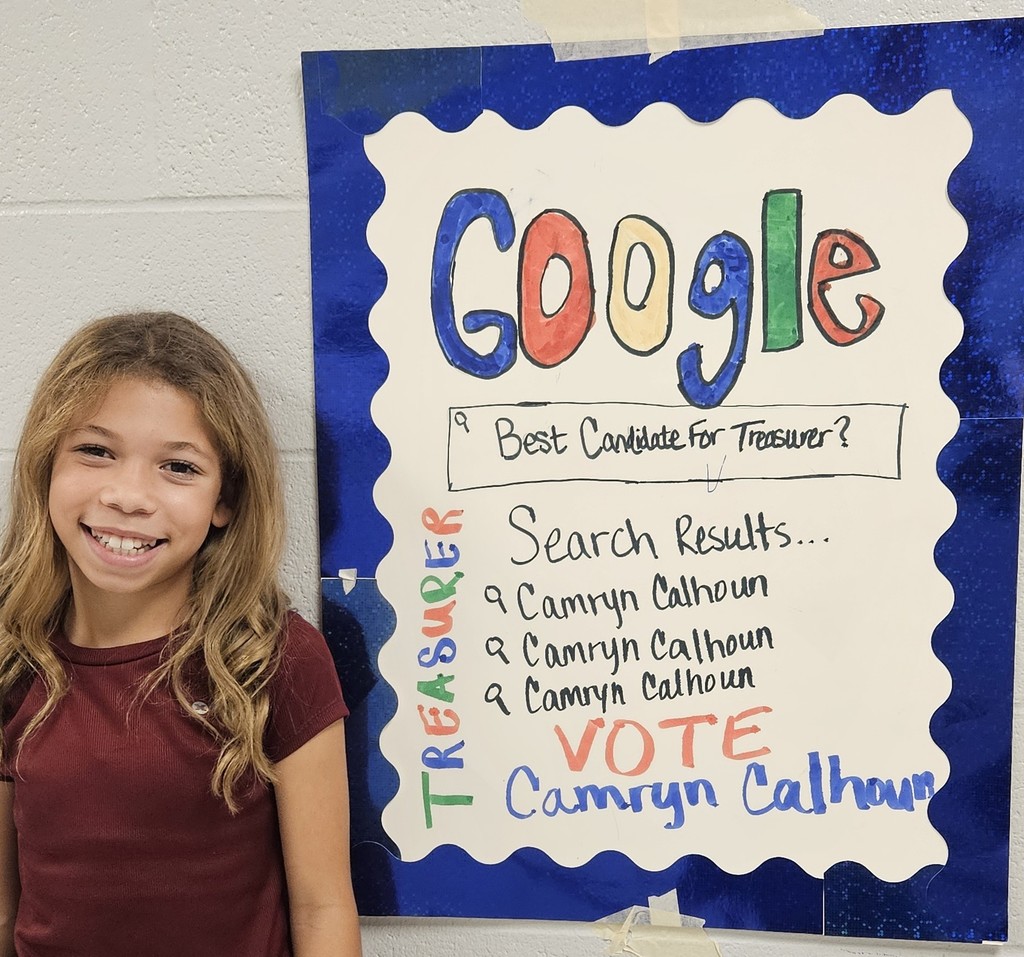 Google
Best Candidate For Treasurer?
Search Results...
Camryn Calhoun
Camryn Calhoun
Camryn Calhoun
TREASURER
VOTE
Camryn Calhoun